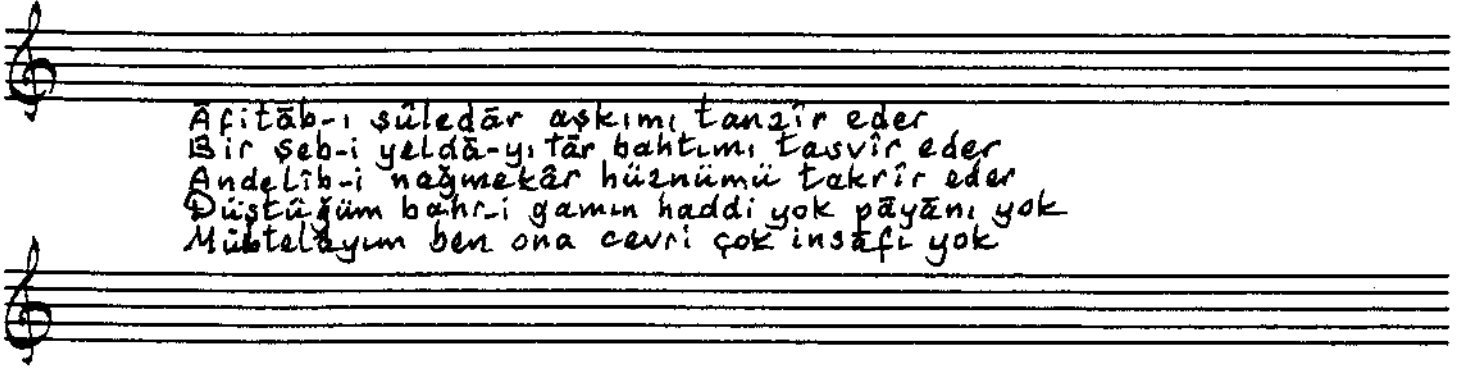 Āfitāb-ı şûledār aşkımı tanzîr eder
Bir şeb-i yeldā-yı tār bahtımı tasvîr eder
Andelîb-i nağmekâr hüznümü takrîr eder
Düştüğüm bahr-i gamın haddi yok pāyānı yok
Mübtelāyım ben ona cevri çok insāfı yok